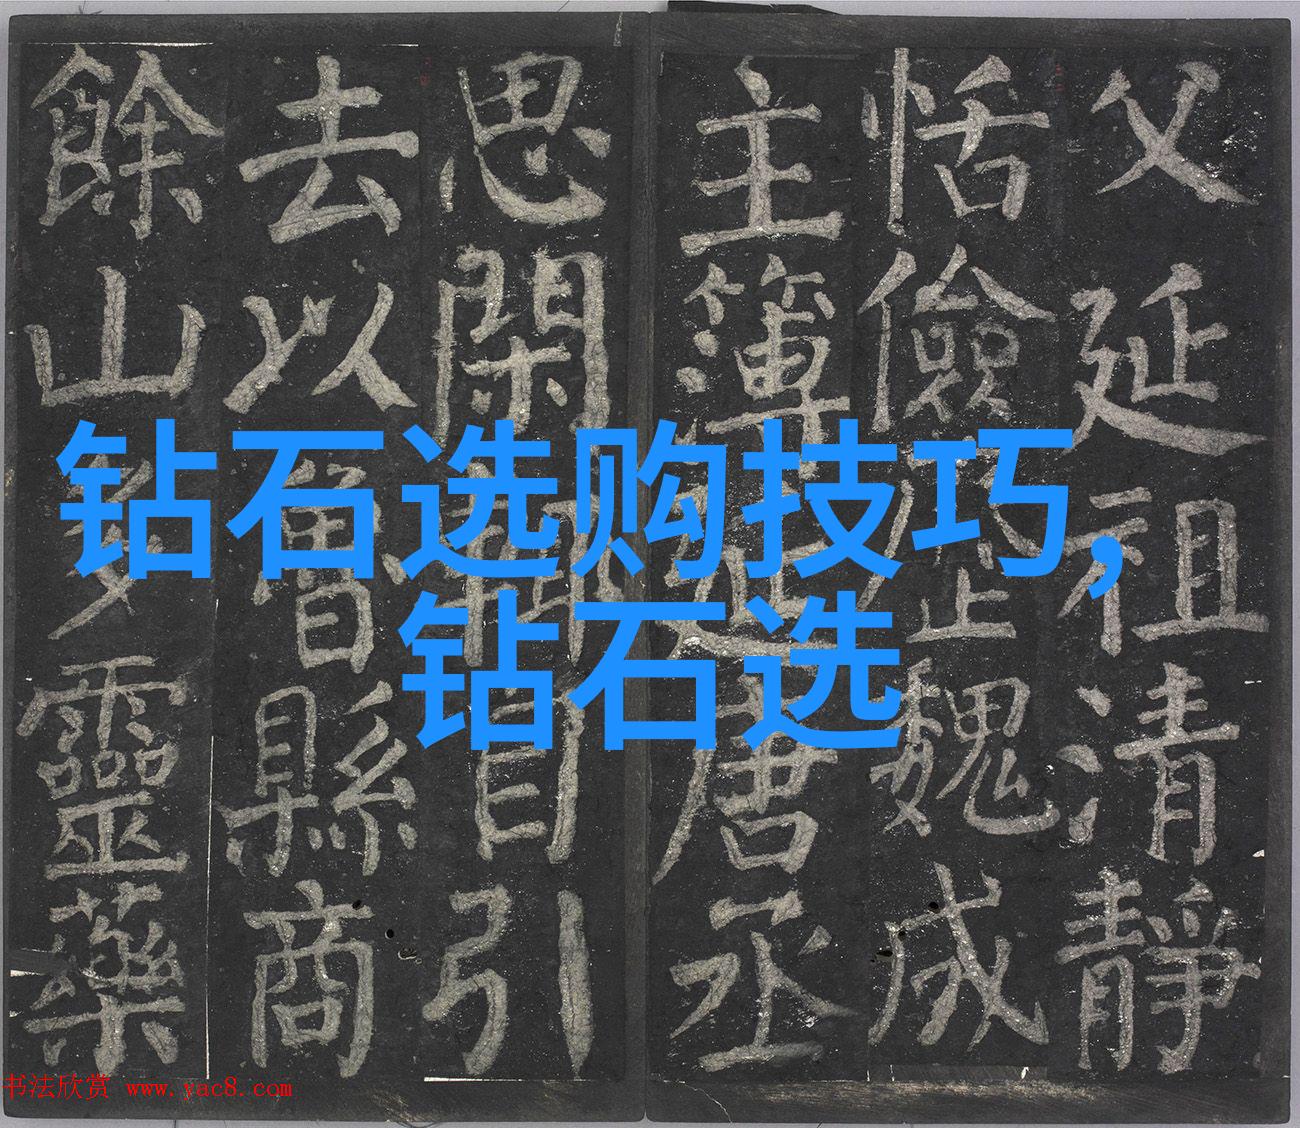 父延祖清靜
恬儉歷魏成
主簿延唐丞
思閑輒自引
去以魯縣商
餘山多靈藥
钻石选购技巧，
钻石选
书法欣赏 www.yac8.com